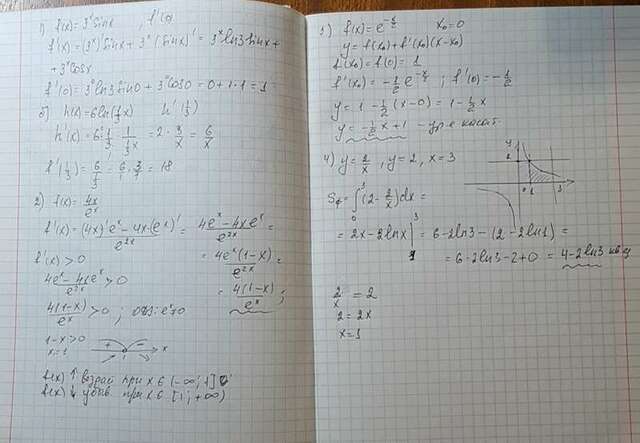 1) f(x) = 3ˣ sinx , f'(0)
f'(x) = (3ˣ)' sinx + 3ˣ (sinx)' = 3ˣ ln3 sinx +
+ 3ˣ cosx
f'(0) = 3⁰ ln3 sin0 + 3⁰ cos0 = 0 + 1·1 = 1
б) h(x) = 6 ln(1/3 x) h'(1/3)
h'(x) = 6 · 1/3 · 1/(1/3 x) = 2 · 3/x = 6/x
h'(1/3) = 6/(1/3) = 6/1 · 3/1 = 18
2) f(x) = 4x/eˣ
f'(x) = ((4x)' eˣ - 4x · (eˣ)')/e²ˣ = (4eˣ - 4x eˣ)/e²ˣ =
= 4eˣ(1-x)/e²ˣ =
= 4(1-x)/eˣ ;
f'(x) > 0
(4eˣ - 4xeˣ)/e²ˣ > 0
4(1-x)/eˣ > 0 ; ОДЗ: eˣ≠0
1-x > 0
x = 1
+ - 1 x
f(x) ↑ возраст при x ∈ (-∞; 1]
f(x) ↓ убыв. при x ∈ [1; +∞)
3) f(x) = e^(-x/2) x₀ = 0
y = f(x₀) + f'(x₀)(x-x₀)
f(x₀) = f(0) = 1
f'(x₀) = -1/2 e^(-x/2) ; f'(0) = -1/2
y = 1 - 1/2 (x-0) = 1 - 1/2 x
y = -1/2 x + 1 - ур-е касат.
4) y = 2/x , y = 2, x = 3
y 2 0 1 3
Sф = ∫ (2 - 2/x) dx =
= 2x - 2lnx |³₁ = 6 - 2ln3 - (2 - 2ln1) =
= 6 - 2ln3 - 2 + 0 = 4 - 2ln3 кв.ед
2/x = 2
2 = 2x
x = 1